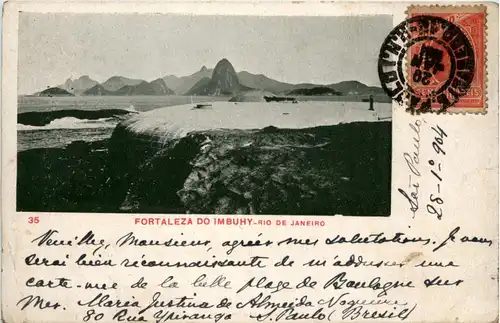 35
FORTALEZA DO IMBUHY-RIO DE JANEIRO
São Paulo
28-1º-904
Veuillez, Monsieur, agréer mes salutations. Je vous
serai bien reconnaissante de m'adresser une
carte-vue de la belle plage de Boulogne sur
Mer. Maria Justina de Almeida Nogueira,
80 Rua Ypiranga S. Paulo (Brésil)